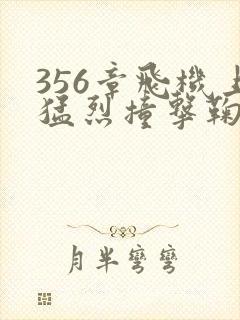 356章飛機上
猛烈撞擊鞠
月半彎彎